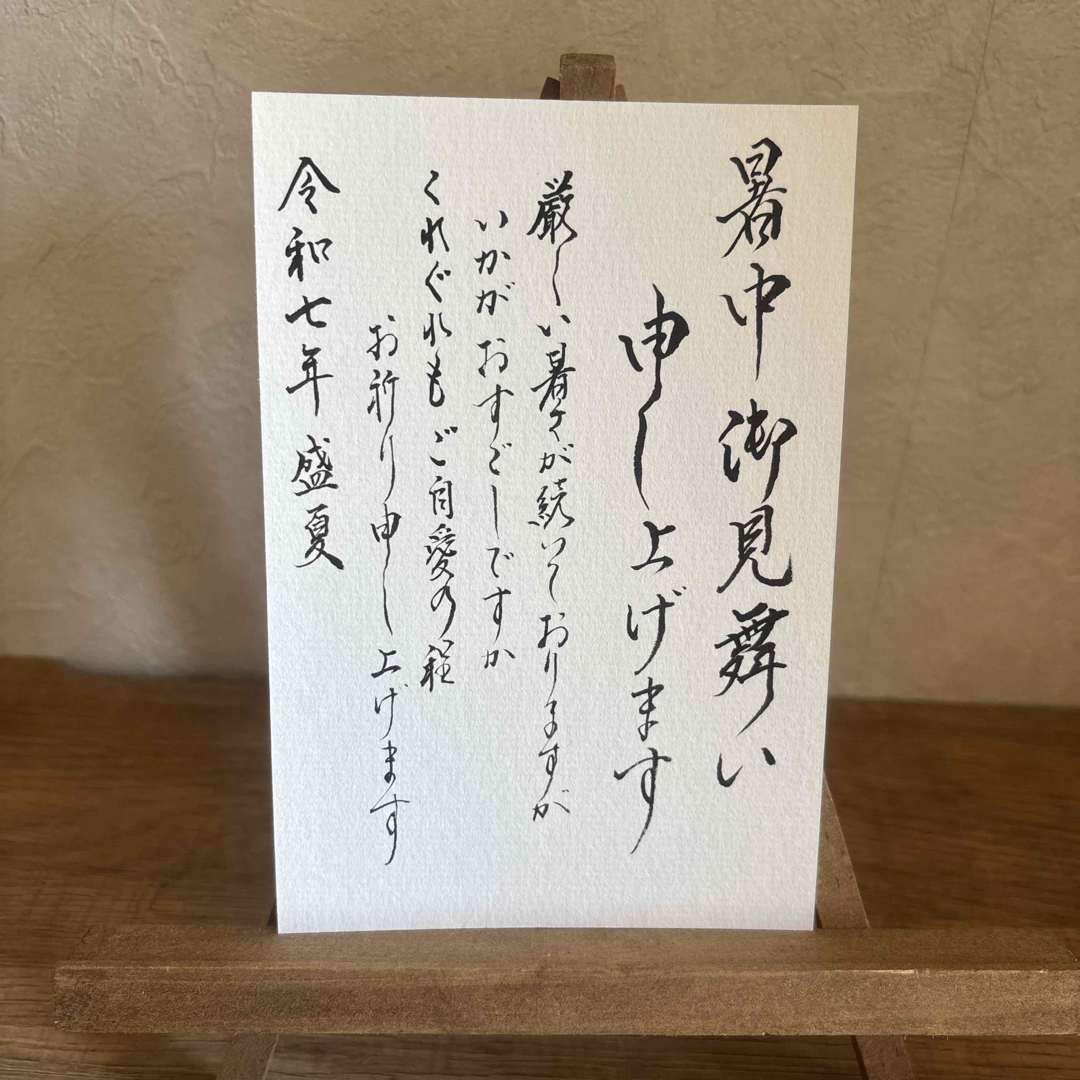 暑中御見舞い
申し上げます
厳しい暑さが続いておりますが
いかがおすごしですか
くれぐれもご自愛の程
お祈り申し上げます
令和七年 盛夏